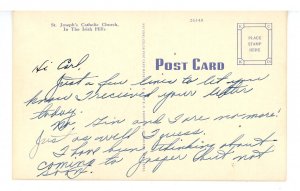 St. Joseph's Catholic Church,
In The Irish Hills
26149
POST CARD
PLACE
STAMP
HERE
Hi Carl,
Just a few lines to let you
know I received your letter
today.
No, Jim and I are no more!
Jus as well I guess.
I have been thinking about
coming to Jasper but not